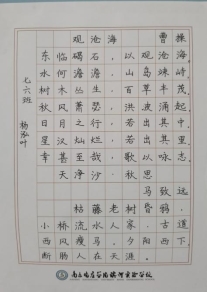 观沧海
曹操
东临碣石，以观沧海。
水何澹澹，山岛竦峙。
树木丛生，百草丰茂。
秋风萧瑟，洪波涌起。
日月之行，若出其中
星汉灿烂，若出其里
幸甚至哉，歌以咏志
天净沙 秋思
马致远
枯藤老树昏鸦，
小桥流水人家，古道
西风瘦马 夕阳西下
断肠人在天
七六班 杨泓叶